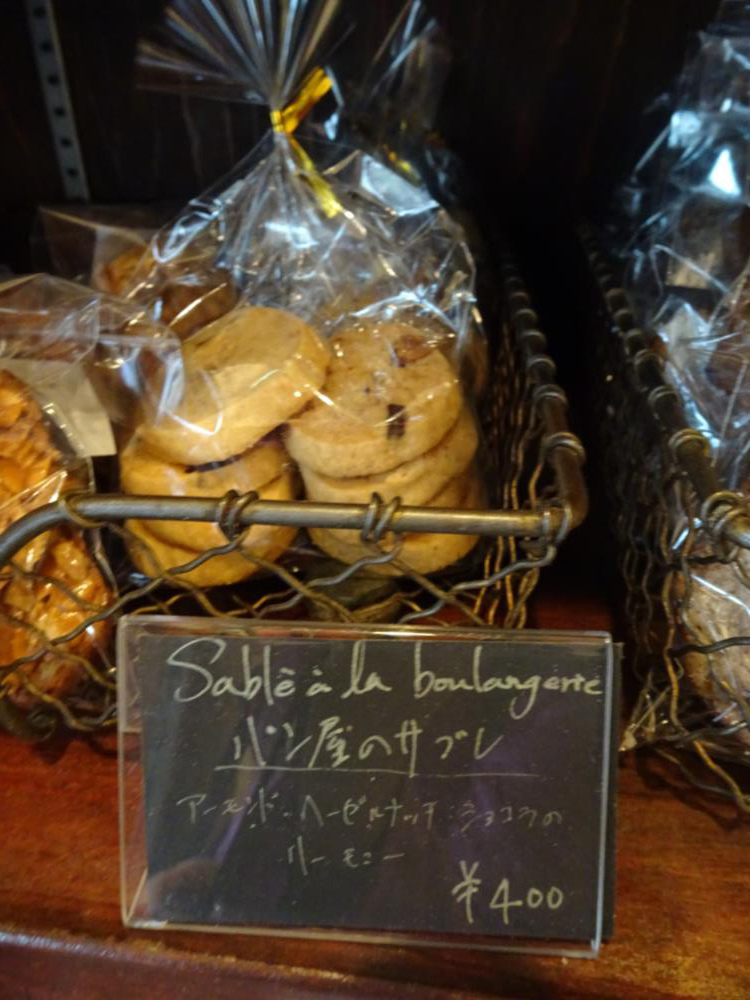 Sablê à la boulangerie
パン屋のサブレ
アーモンド・ヘーゼルナッツ・ショコラの
ハーモニー
¥400